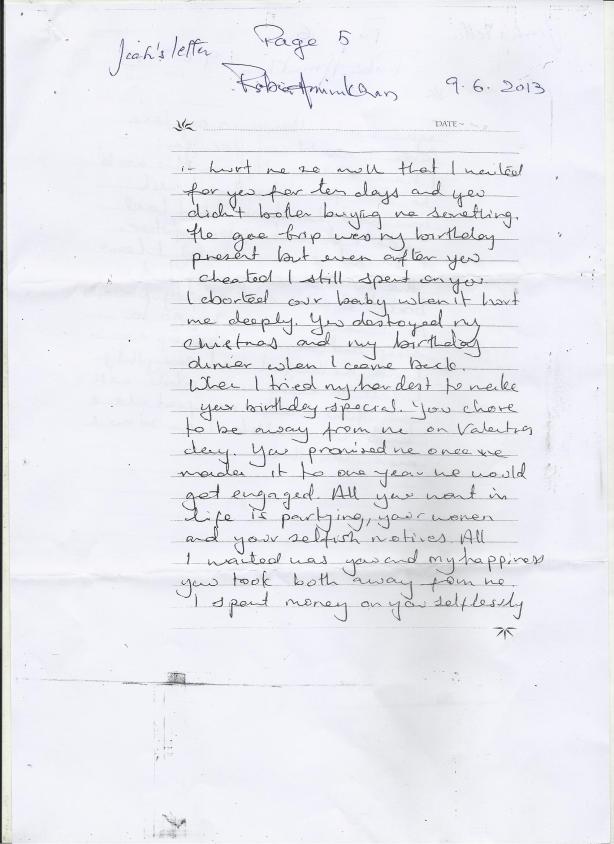 Page 5
Jiah's letter
Rabia Amin Khan
9.6.2013
DATE ~
it hurt me so much that I waited
for you for ten days and you
didn't bother buying me something.
The goa trip was my birthday
present but even after you
cheated I still spent on you
I aborted our baby when it hurt
me deeply. You destroyed my
christmas and my birthday
dinner when I came back.
When I tried my hardest to make
your birthday special. You chose
to be away from me on Valentines
day. You promised me once we
made it to one year we would
get engaged. All you want in
life is partying, your women
and your selfish motives. All
I wanted was you and my happiness
you took both away from me.
I spent money on you selflessly